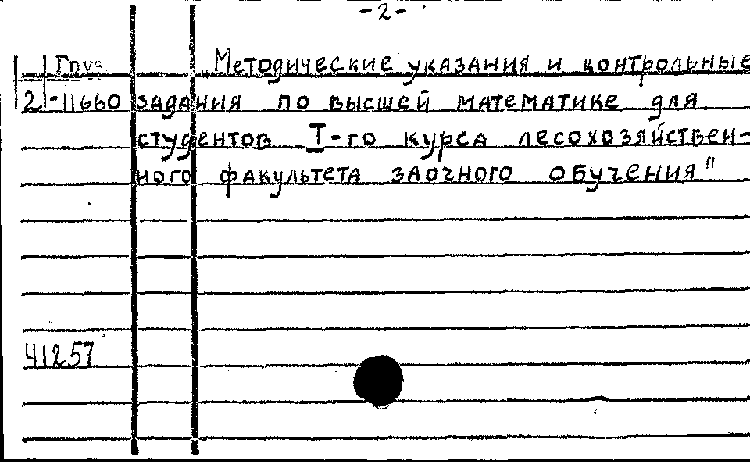 -2-
Методические указания и контрольные
2-11660 задания по высшей математике для
студентов I-го курса лесохозяйствен-
ного факультета заочного обучения"
41257